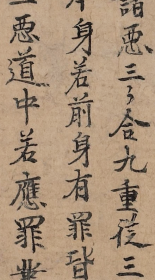 諸惡三〻合九重從三
身若前身有罪皆
惡道中若應罪業